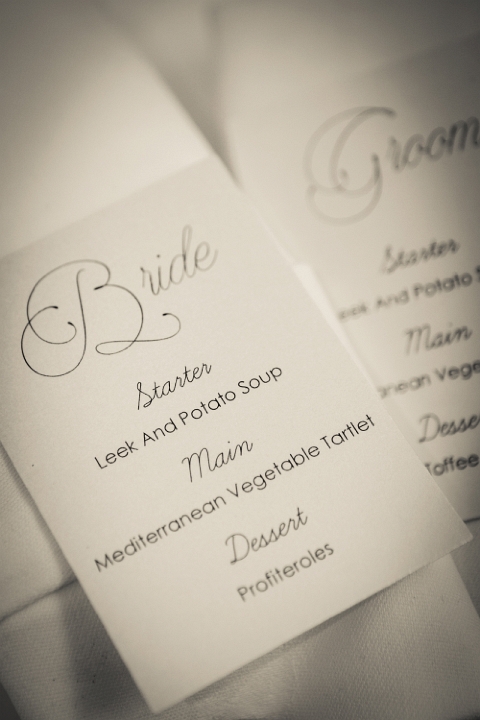 Bride
Starter
Leek And Potato Soup
Main
Mediterranean Vegetable Tartlet
Dessert
Profiteroles
Groom
Starter
And Potato
Main
Toffee